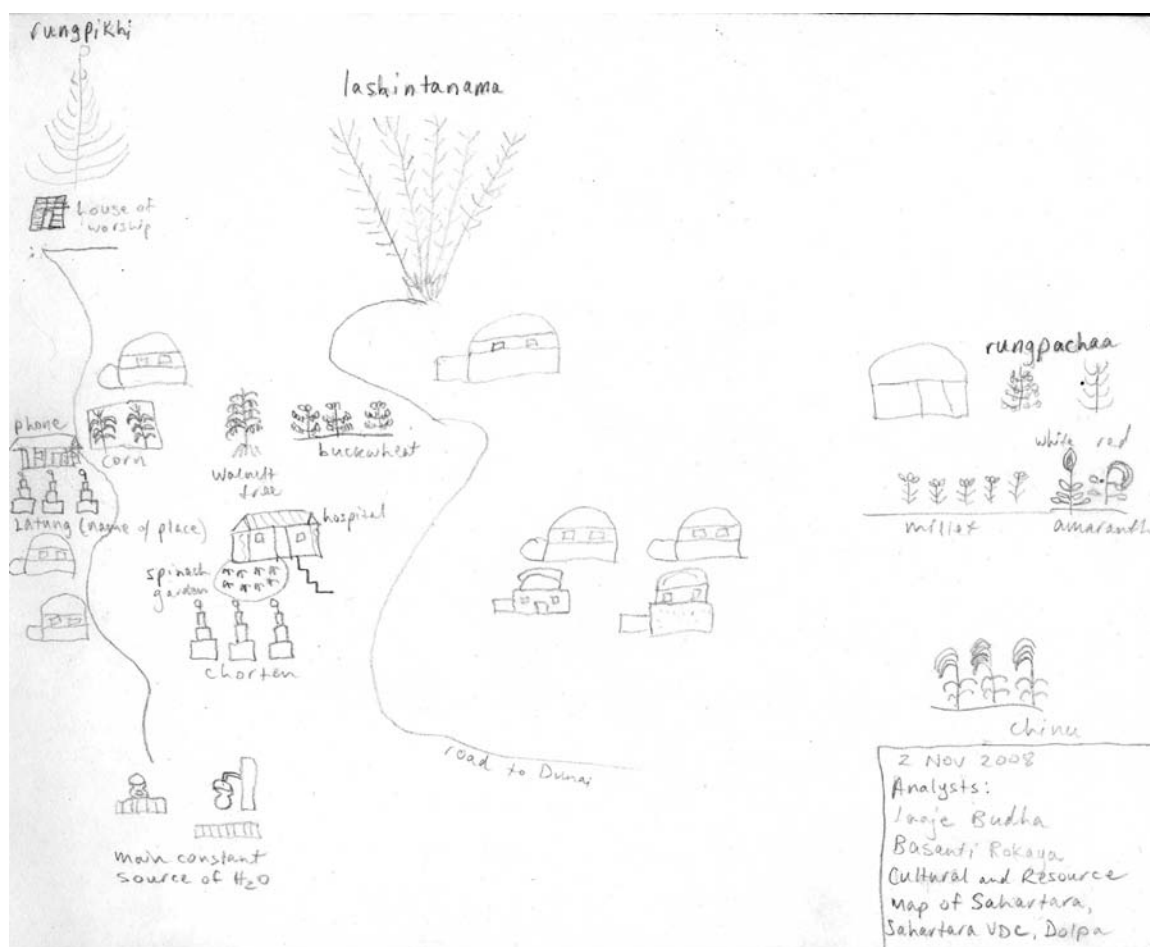 rungpikhi
lashintanama
house of
worship
rungpachaa
phone
corn
walnutt
tree
buckwheat
white red
millet
amaranth
Latung (name of place)
hospital
spinach
garden
chorten
chinu
road to Dunai
main constant
source of H₂O
2 NOV 2008
Analysts:
Budha
Basanti Rokaya
Cultural and Resource
Map of Sahartara,
Sahartara VDC, Dolpa